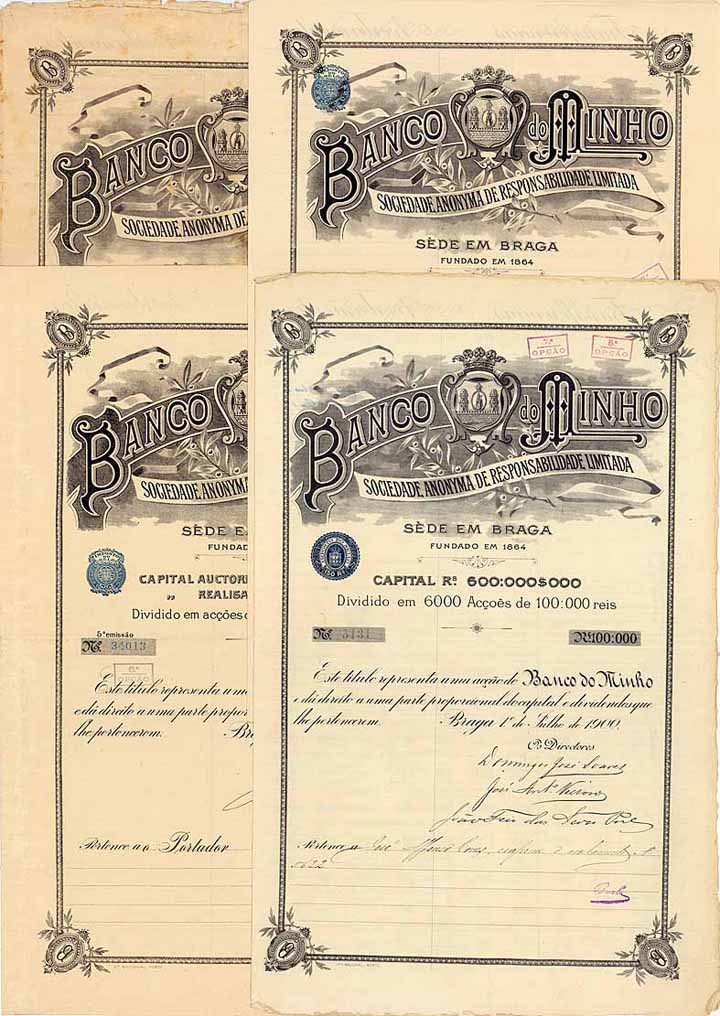 BANCO
SOCIEDADE ANONYMA DE
BANCO do MINHO
SOCIEDADE ANONYMA DE RESPONSABILIDADE LIMITADA
SÈDE EM BRAGA
FUNDADO EM 1864
BANCO
SOCIEDADE ANONYMA
SÈDE E
FUNDAD
CAPITAL AUCTORI
„ REALISA
Dividido em acções
5ª emissão
Nº 34013
6ª
OPÇÃO
Este titulo representa uma
e dá direito a uma parte propor
lhe pertencerem. Br
Pertence a o Portador
7ª
OPÇÃO
8ª
OPÇÃO
BANCO do MINHO
SOCIEDADE ANONYMA DE RESPONSABILIDADE LIMITADA
SÈDE EM BRAGA
FUNDADO EM 1864
CAPITAL Rˢ 600:000$000
Dividido em 6000 Acçoês de 100:000 reis
Nº 3131
Rˢ 100:000
Este titulo representa uma acção do Banco do Minho
e dá direito a uma parte proporcional do capital e dividendos que
lhe pertencerem. Braga 1º de Julho de 1900.
Os Directores
Domingos José Soares
José Antº Vieira
João
Pertence a José